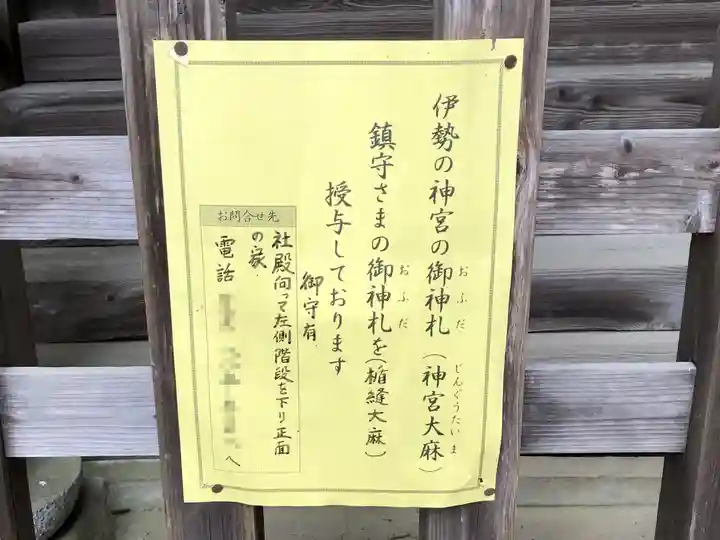 伊勢の神宮の御神札（神宮大麻）
おふだ
じんぐうたいま
鎮守さまの御神札を（楯縫大麻）
おふだ
授与しております
御守有
お問合せ先
社殿向って左側階段を下り正面
の家
電話
へ